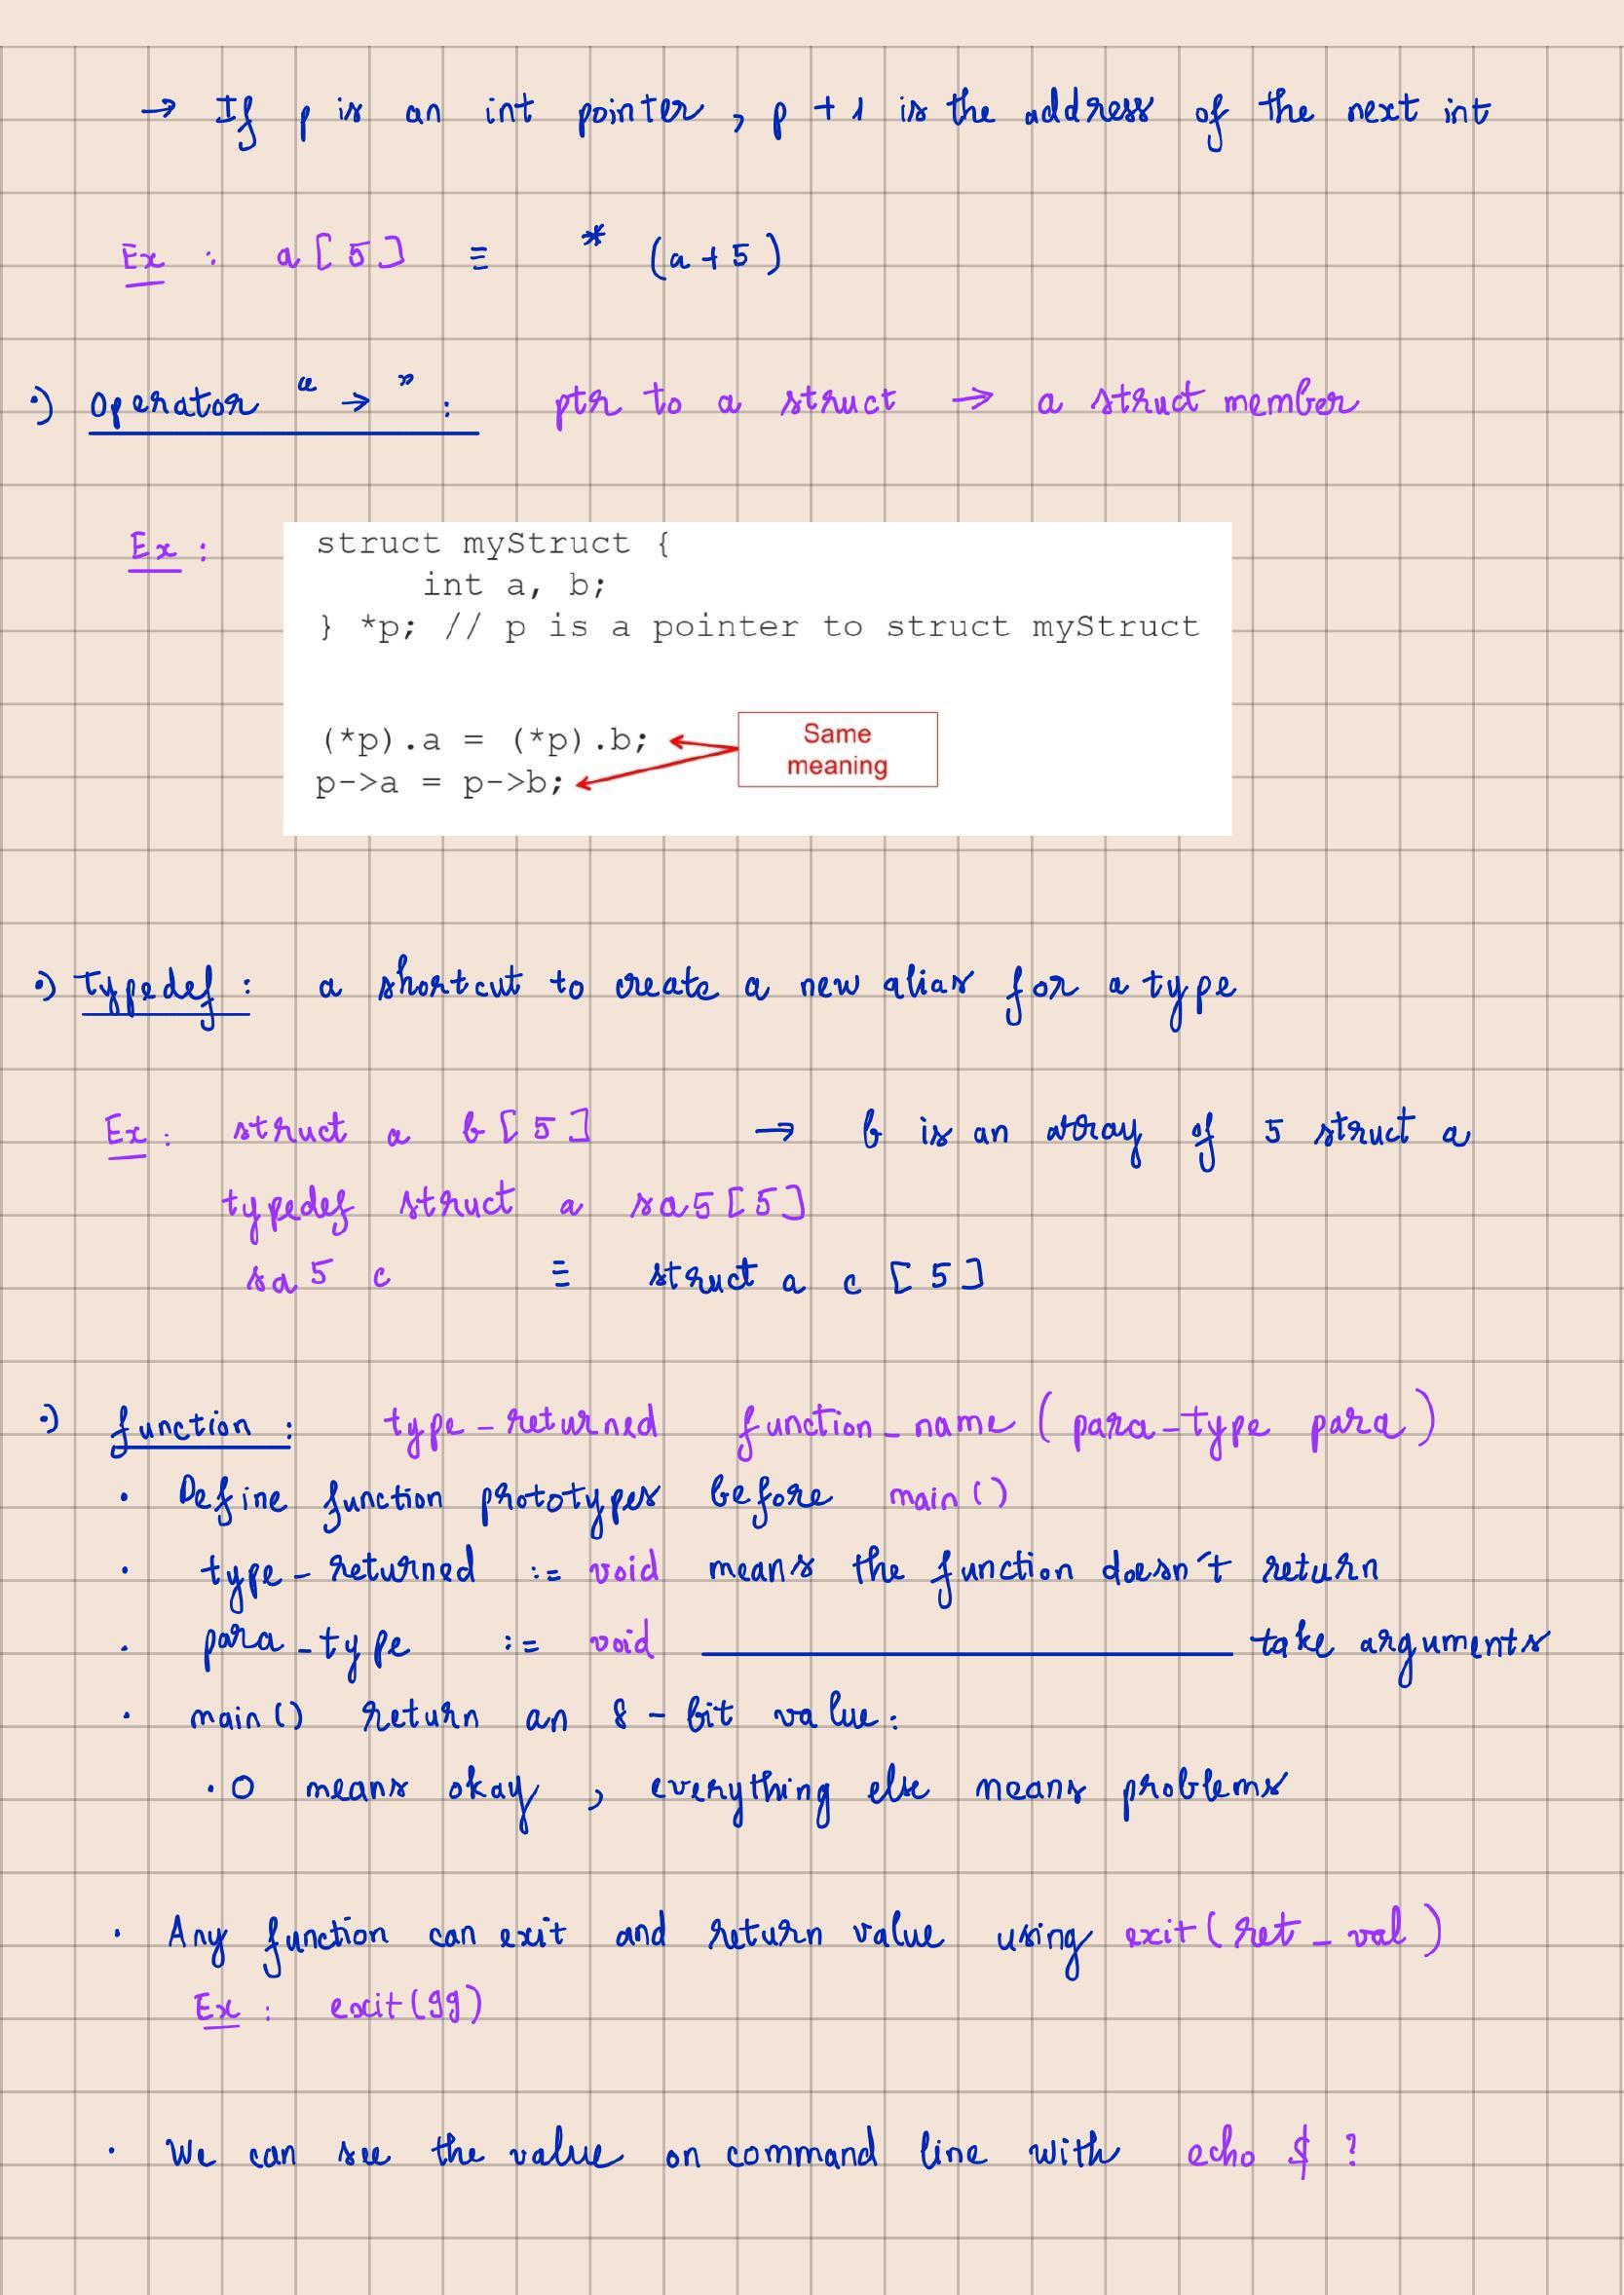 → If p is an int pointer, p + 1 is the address of the next int
Ex : a[5] ≡ * (a+5)
•) Operator “→” : ptr to a struct → a struct member
Ex :
struct myStruct {
int a, b;
} *p; // p is a pointer to struct myStruct
(*p).a = (*p).b;
Same
meaning
p->a = p->b;
•) Typedef : a shortcut to create a new alias for a type
Ex : struct a b[5] → b is an array of 5 struct a
typedef struct a sa5[5]
sa5 c ≡ struct a c[5]
•) function : type-returned function_name (para-type para)
• Define function prototypes before main()
• type-returned := void means the function doesn't return
• para-type := void ———— take arguments
• main() return an 8-bit value:
• 0 means okay, everything else means problems
• Any function can exit and return value using exit(ret_val)
Ex : exit(99)
• We can see the value on command line with echo $?